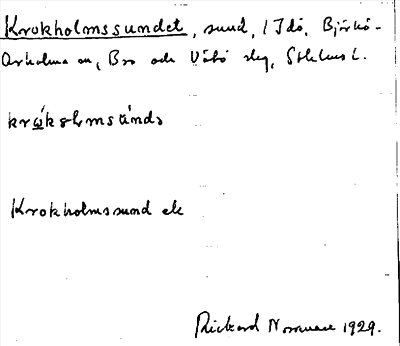 Krokholmssundet, sund, i Idö, Björkö-
Arholma sn, Bro och Vätö skg, Sthlms l.
krώkɔlmsúndə
Krokholmssund ek
Rickard Norrman 1929.